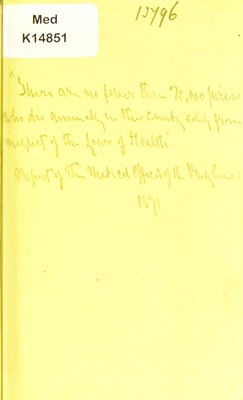 Med
K14851
15796
"There are no fewer than 70,000 persons
who die annually in this Country solely from
neglect of the Laws of Health".
Report of the Medical Officer of the Privy Council